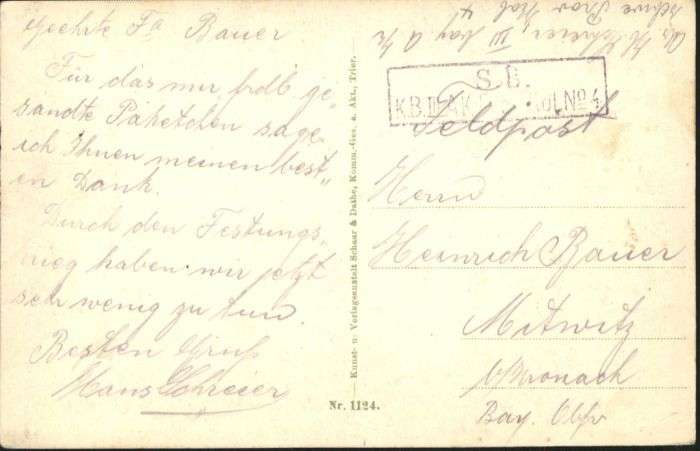 Geehrte Fa Bauer
Für das mir frdl ge„
sandte Paketchen sage
ich Ihnen meinen best„
en Dank.
Durch den Festungs„
krieg haben wir jetzt
sehr wenig zu tun.
Besten Gruß
Hans Schreier
Kunst- u. Verlagsanstalt Schaar & Dathe, Komm.-Ges. a. Akt., Trier.
Nr. 1124.
Schreier III bay
S.B.
K.B. No 4
Feldpost
Herrn
Heinrich Bauer
Mitwitz
b/Kronach
Bay. Obfr